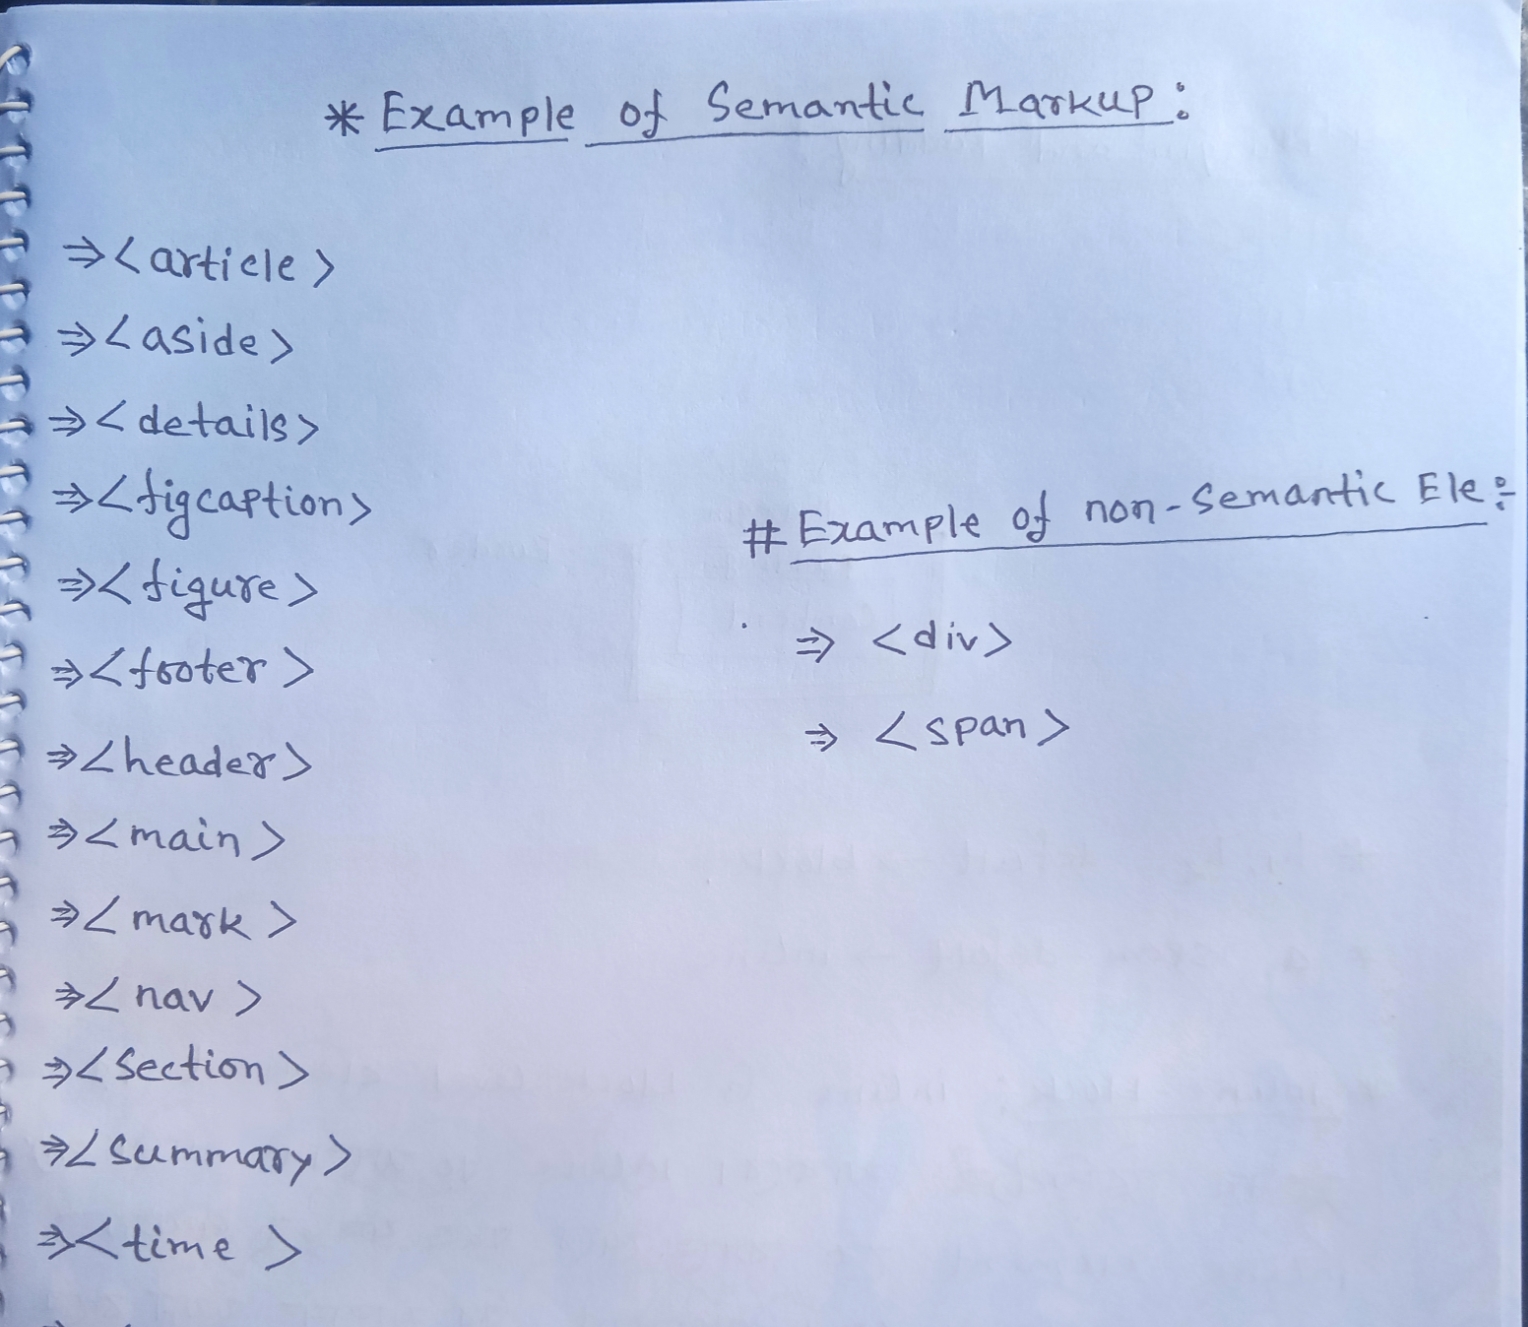 * Example of Semantic Markup:
⇒<article>
⇒<aside>
⇒<details>
⇒<figcaption>
⇒<figure>
⇒<footer>
⇒<header>
⇒<main>
⇒<mark>
⇒<nav>
⇒<section>
⇒<summary>
⇒<time>
# Example of non-semantic Ele:-
⇒ <div>
⇒ <span>